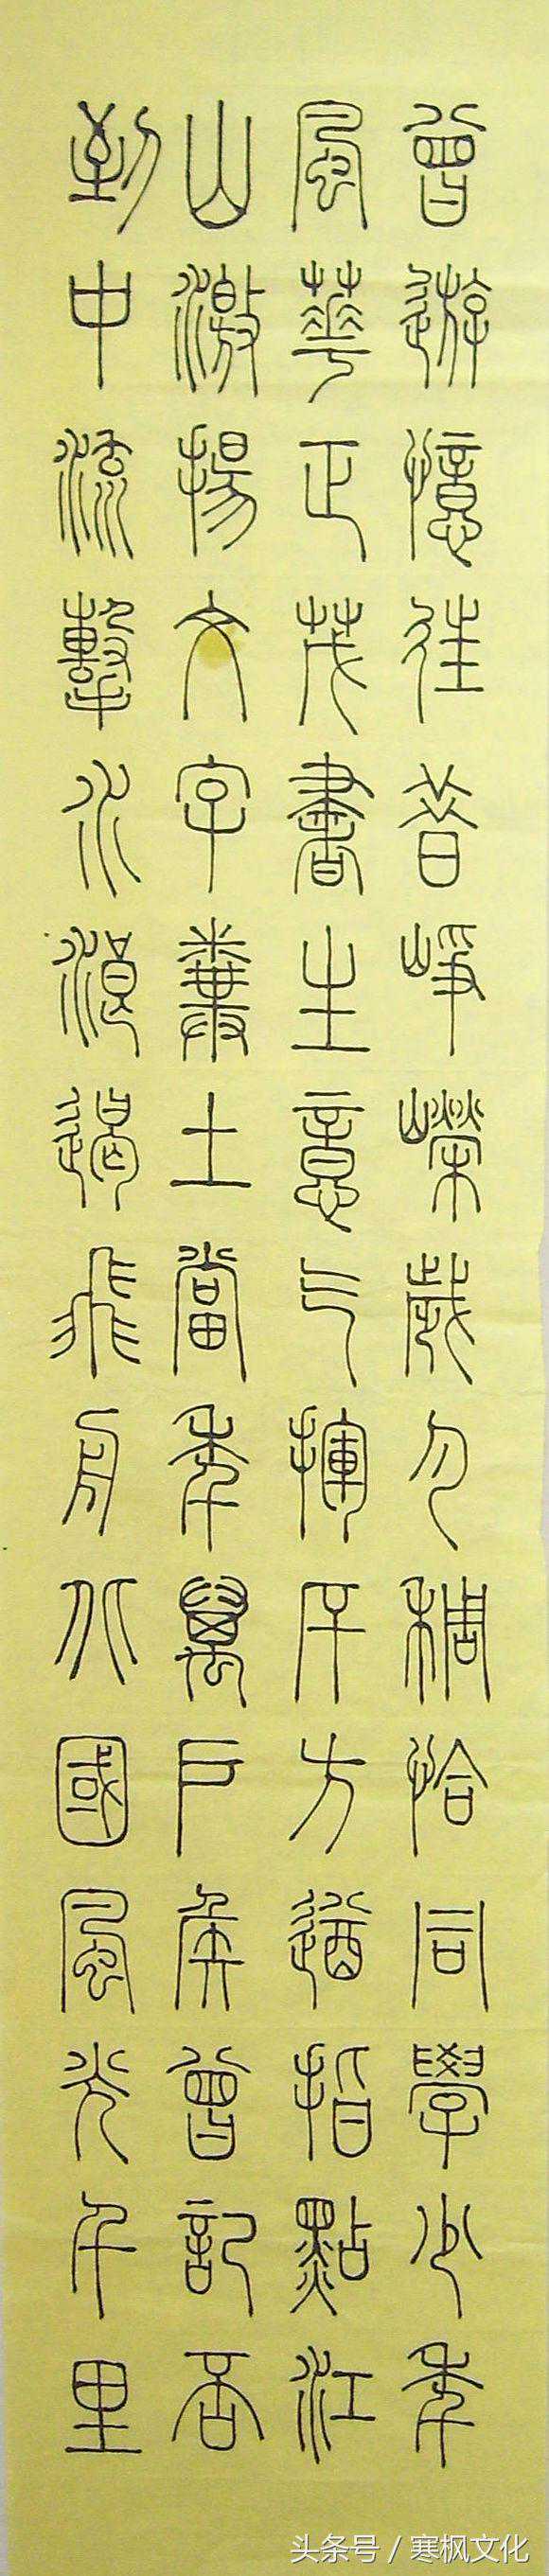 曾遊憶往昔崢嶸歲月稠恰同學少年
風華正茂書生意气揮斥方遒指點江
山激揚文字糞土當年萬戶侯曾記否
到中流擊水浪遏飛舟北國風光千里
头条号 / 寒枫文化